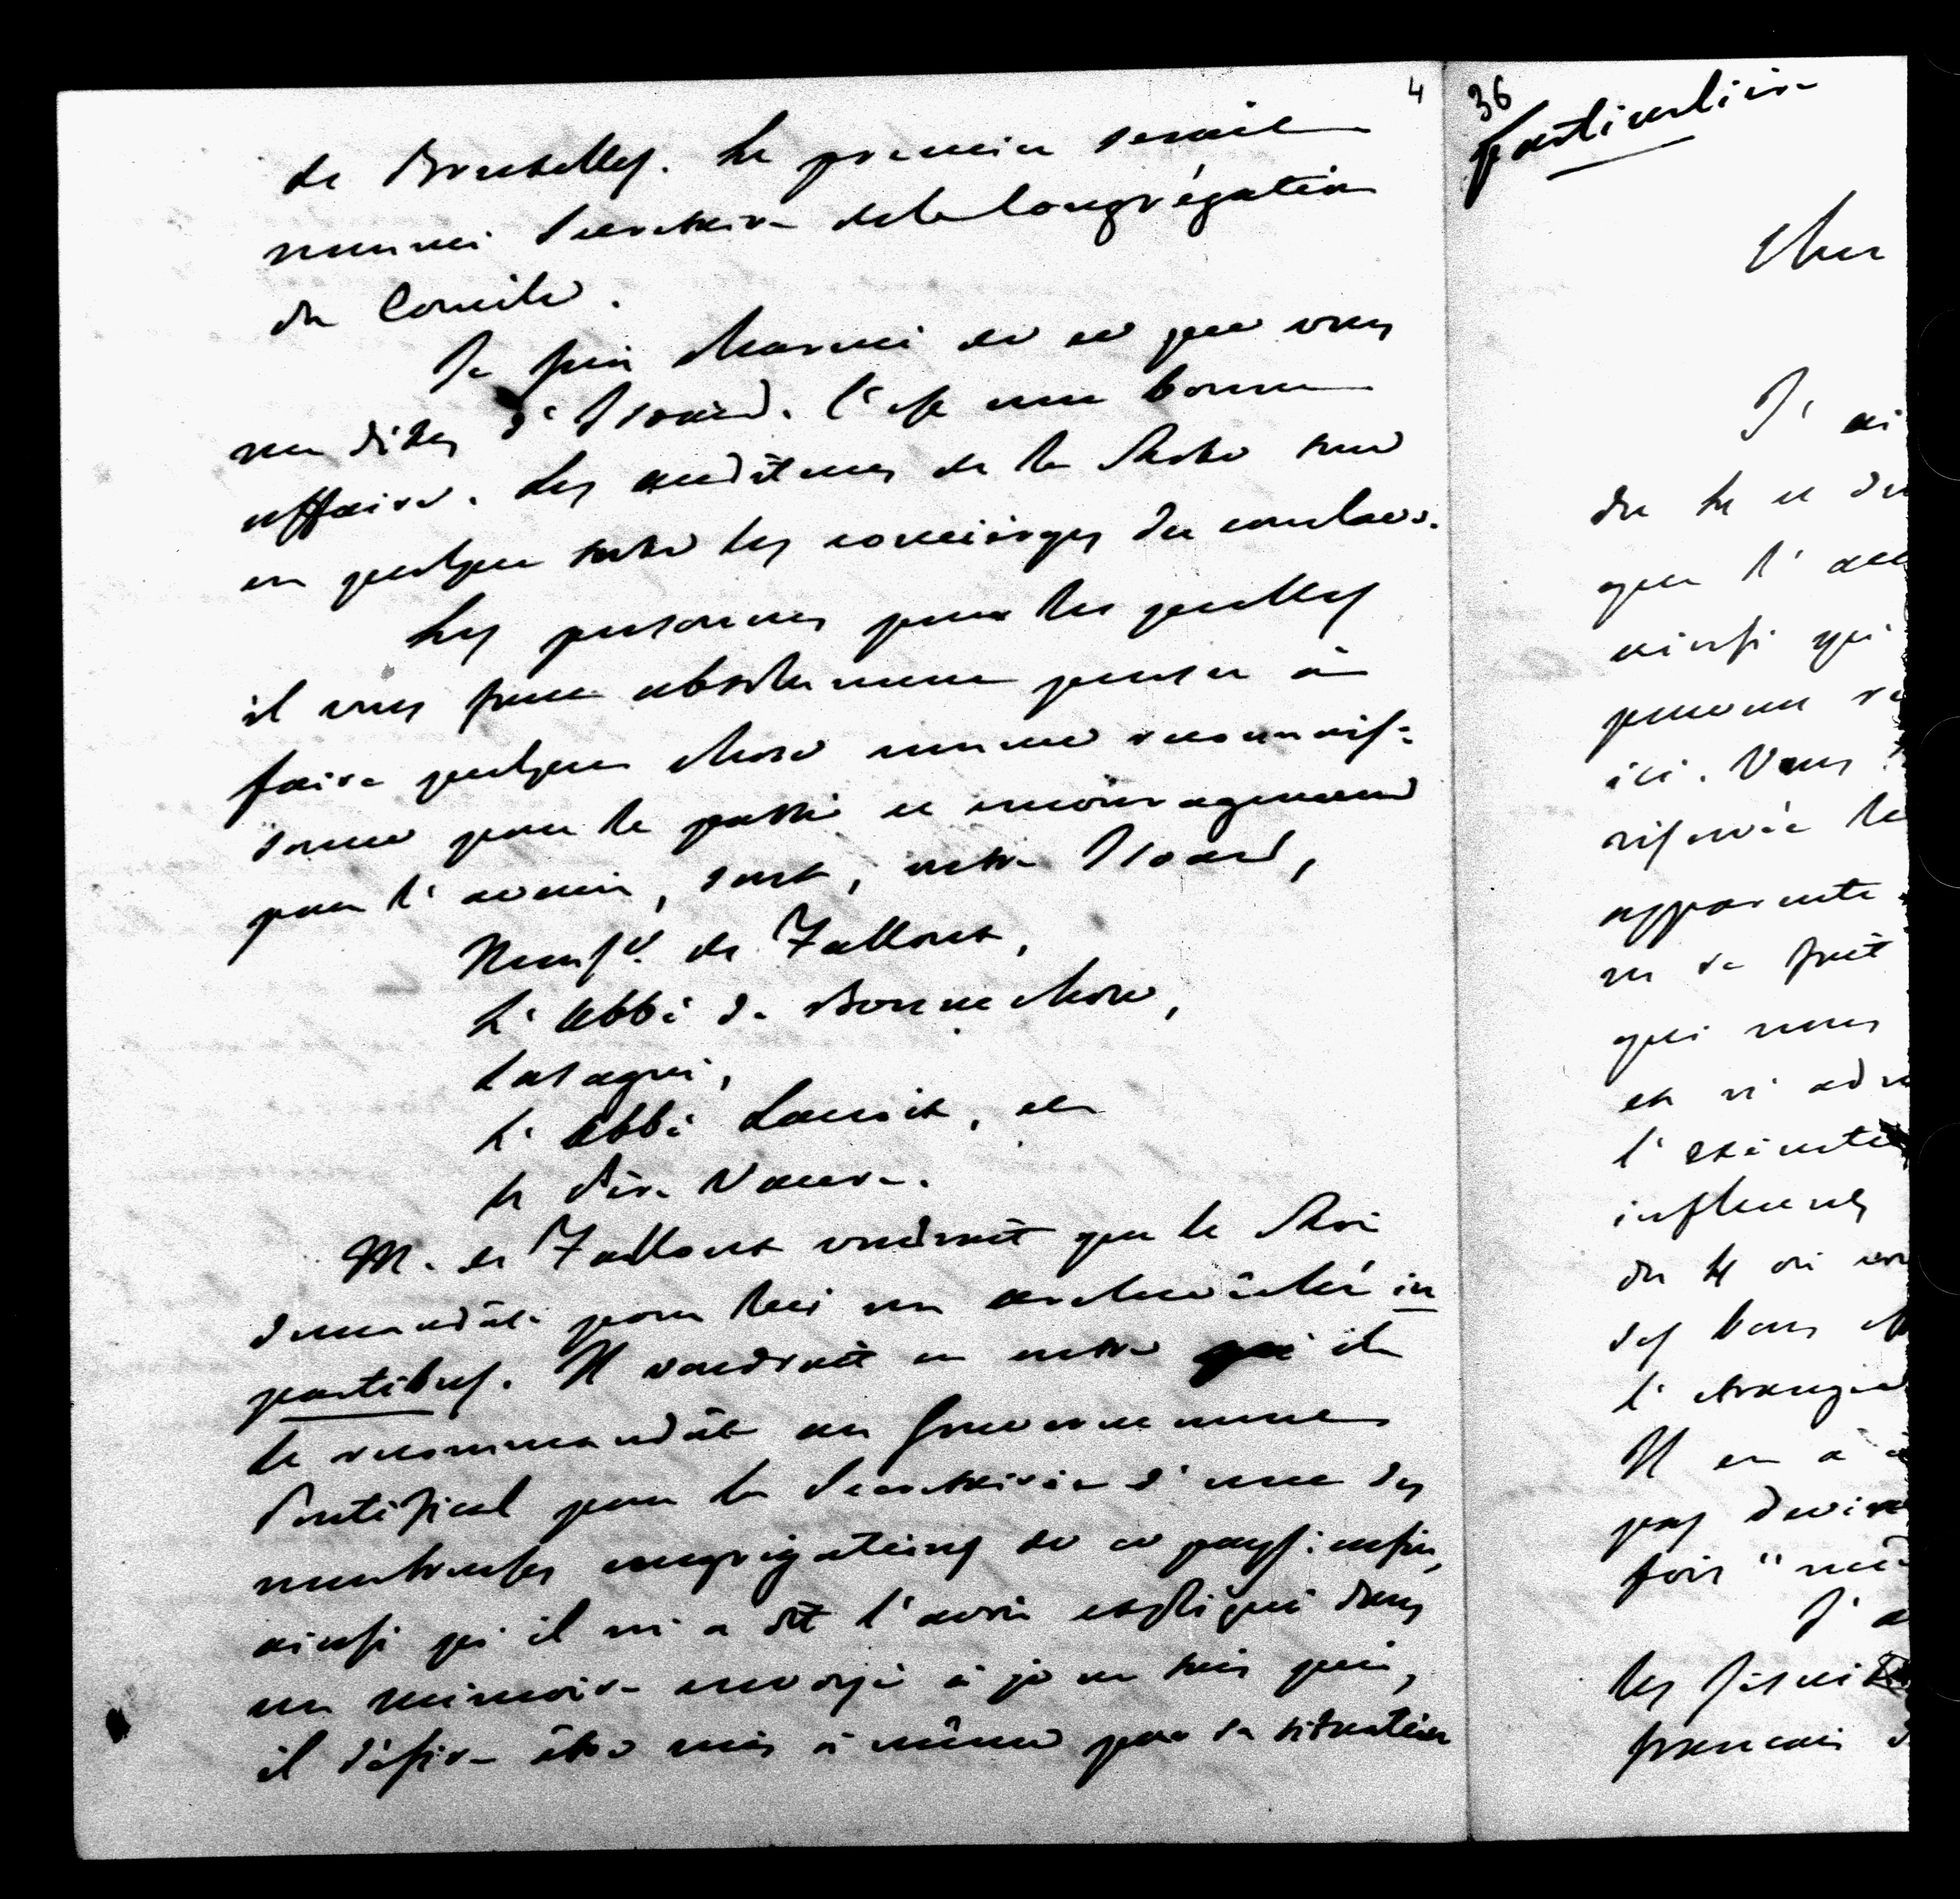 4
de Bruxelles. Le premier serait
nommé Secrétaire de la Congrégation
du Concile.
Je suis charmé de ce que vous
me dites d'Isoard. C'est une bonne
affaire. Les auditeurs de la Rote sont
en quelque sorte les concierges du conclave.
Les personnes pour lesquelles
il vous faut absolument penser à
faire quelque chose comme reconnais-
sance pour le passé et encouragement
pour l'avenir, sont, outre Isoard,
Monsgr de Falloux,
L'abbé de Bonnechose,
Lasagni,
L'abbé Lacroix, et
le Père Vaure.
M. de Falloux voudrait que le Roi
demandât pour lui un archevêché in
partibus. Il voudrait en outre qu'il
le recommandât au Gouvernement
Pontifical pour la Secrétairie d'une des
nombreuses congrégations de ce pays: enfin,
ainsi qu'il m'a dit l'avoir expliqué dans
un mémoire envoyé à je ne sais qui,
il désire être mis à même par sa situation
36
particulière
Cher
J'ai
du 4 et du
que l'
ainsi qu'
ici. Vous
réservée
apparente
ne se fut
qui nous
et m'
l'exécution
influences
du 4 où
des bons
l'étranger
Il en a
pas
fois "
J'
les Jésuites
français